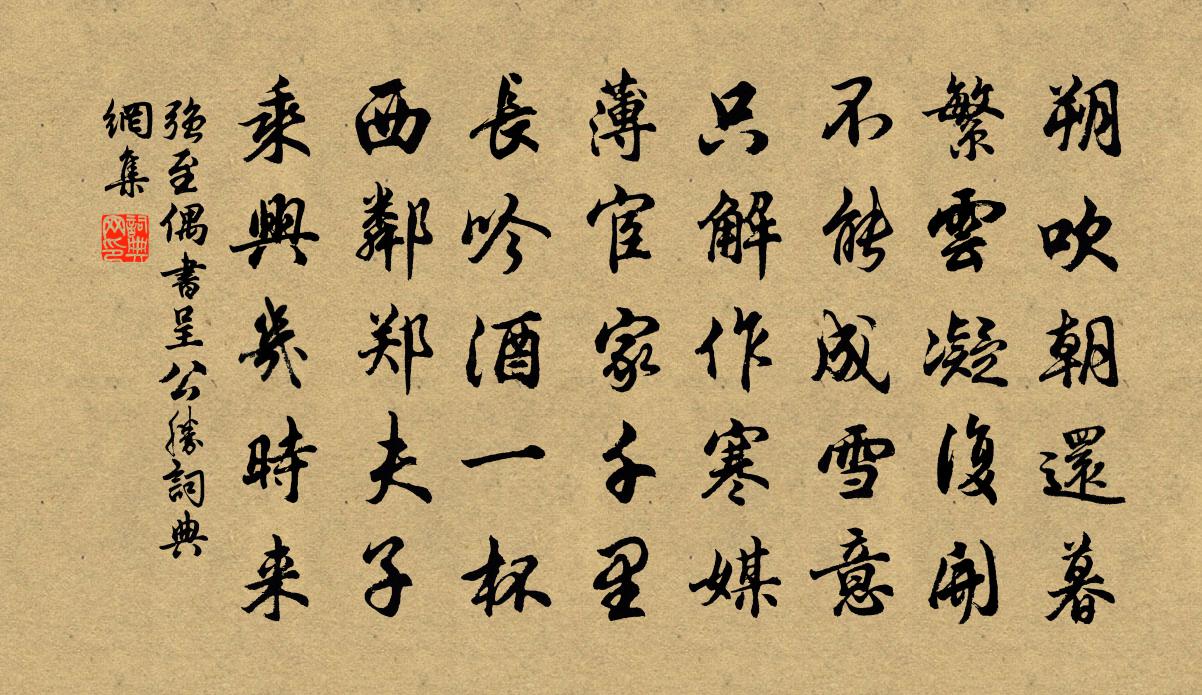 朔吹朝還暮
繁雲凝復開
不能成雪意
只解作寒媒
薄宦家千里
長吟酒一杯
西鄰郑夫子
乘興幾時来
强至偶書呈公勝詞典
網集
詞典網印